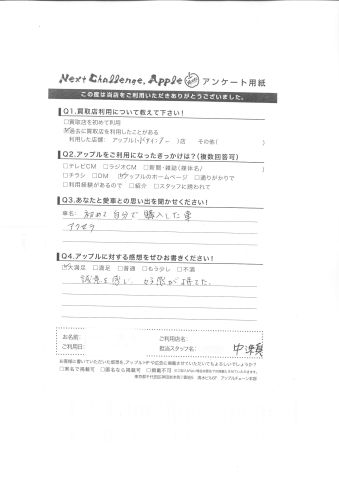 Next Challenge. Apple アンケート用紙
この度は当店をご利用いただきありがとうございました。
Q1.買取店利用について教えて下さい!
□買取店を初めて利用
☑過去に買取店を利用したことがある
利用した店舗: アップル( )店 その他( )
Q2.アップルをご利用になったきっかけは?(複数回答可)
□テレビCM □ラジオCM □新聞・雑誌(媒体名/ )
□チラシ □DM ☑アップルのホームページ □通りがかりで
□利用経験があるので □紹介 □スタッフに誘われて
Q3.あなたと愛車との思い出を聞かせください!
車名: 初めて自分で購入した車
アクセラ
Q4.アップルに対する感想をぜひお書きください!
☑大満足 □満足 □普通 □もう少し □不満
誠意を感じ、好感が持てた。
お名前: ご利用店名:
ご利用日: 担当スタッフ名:
お客様に書いていただいた感想を、アップルHPや広告に掲載させていただいてもよろしいでしょうか?
□実名で掲載可 □匿名なら掲載可 □掲載不可